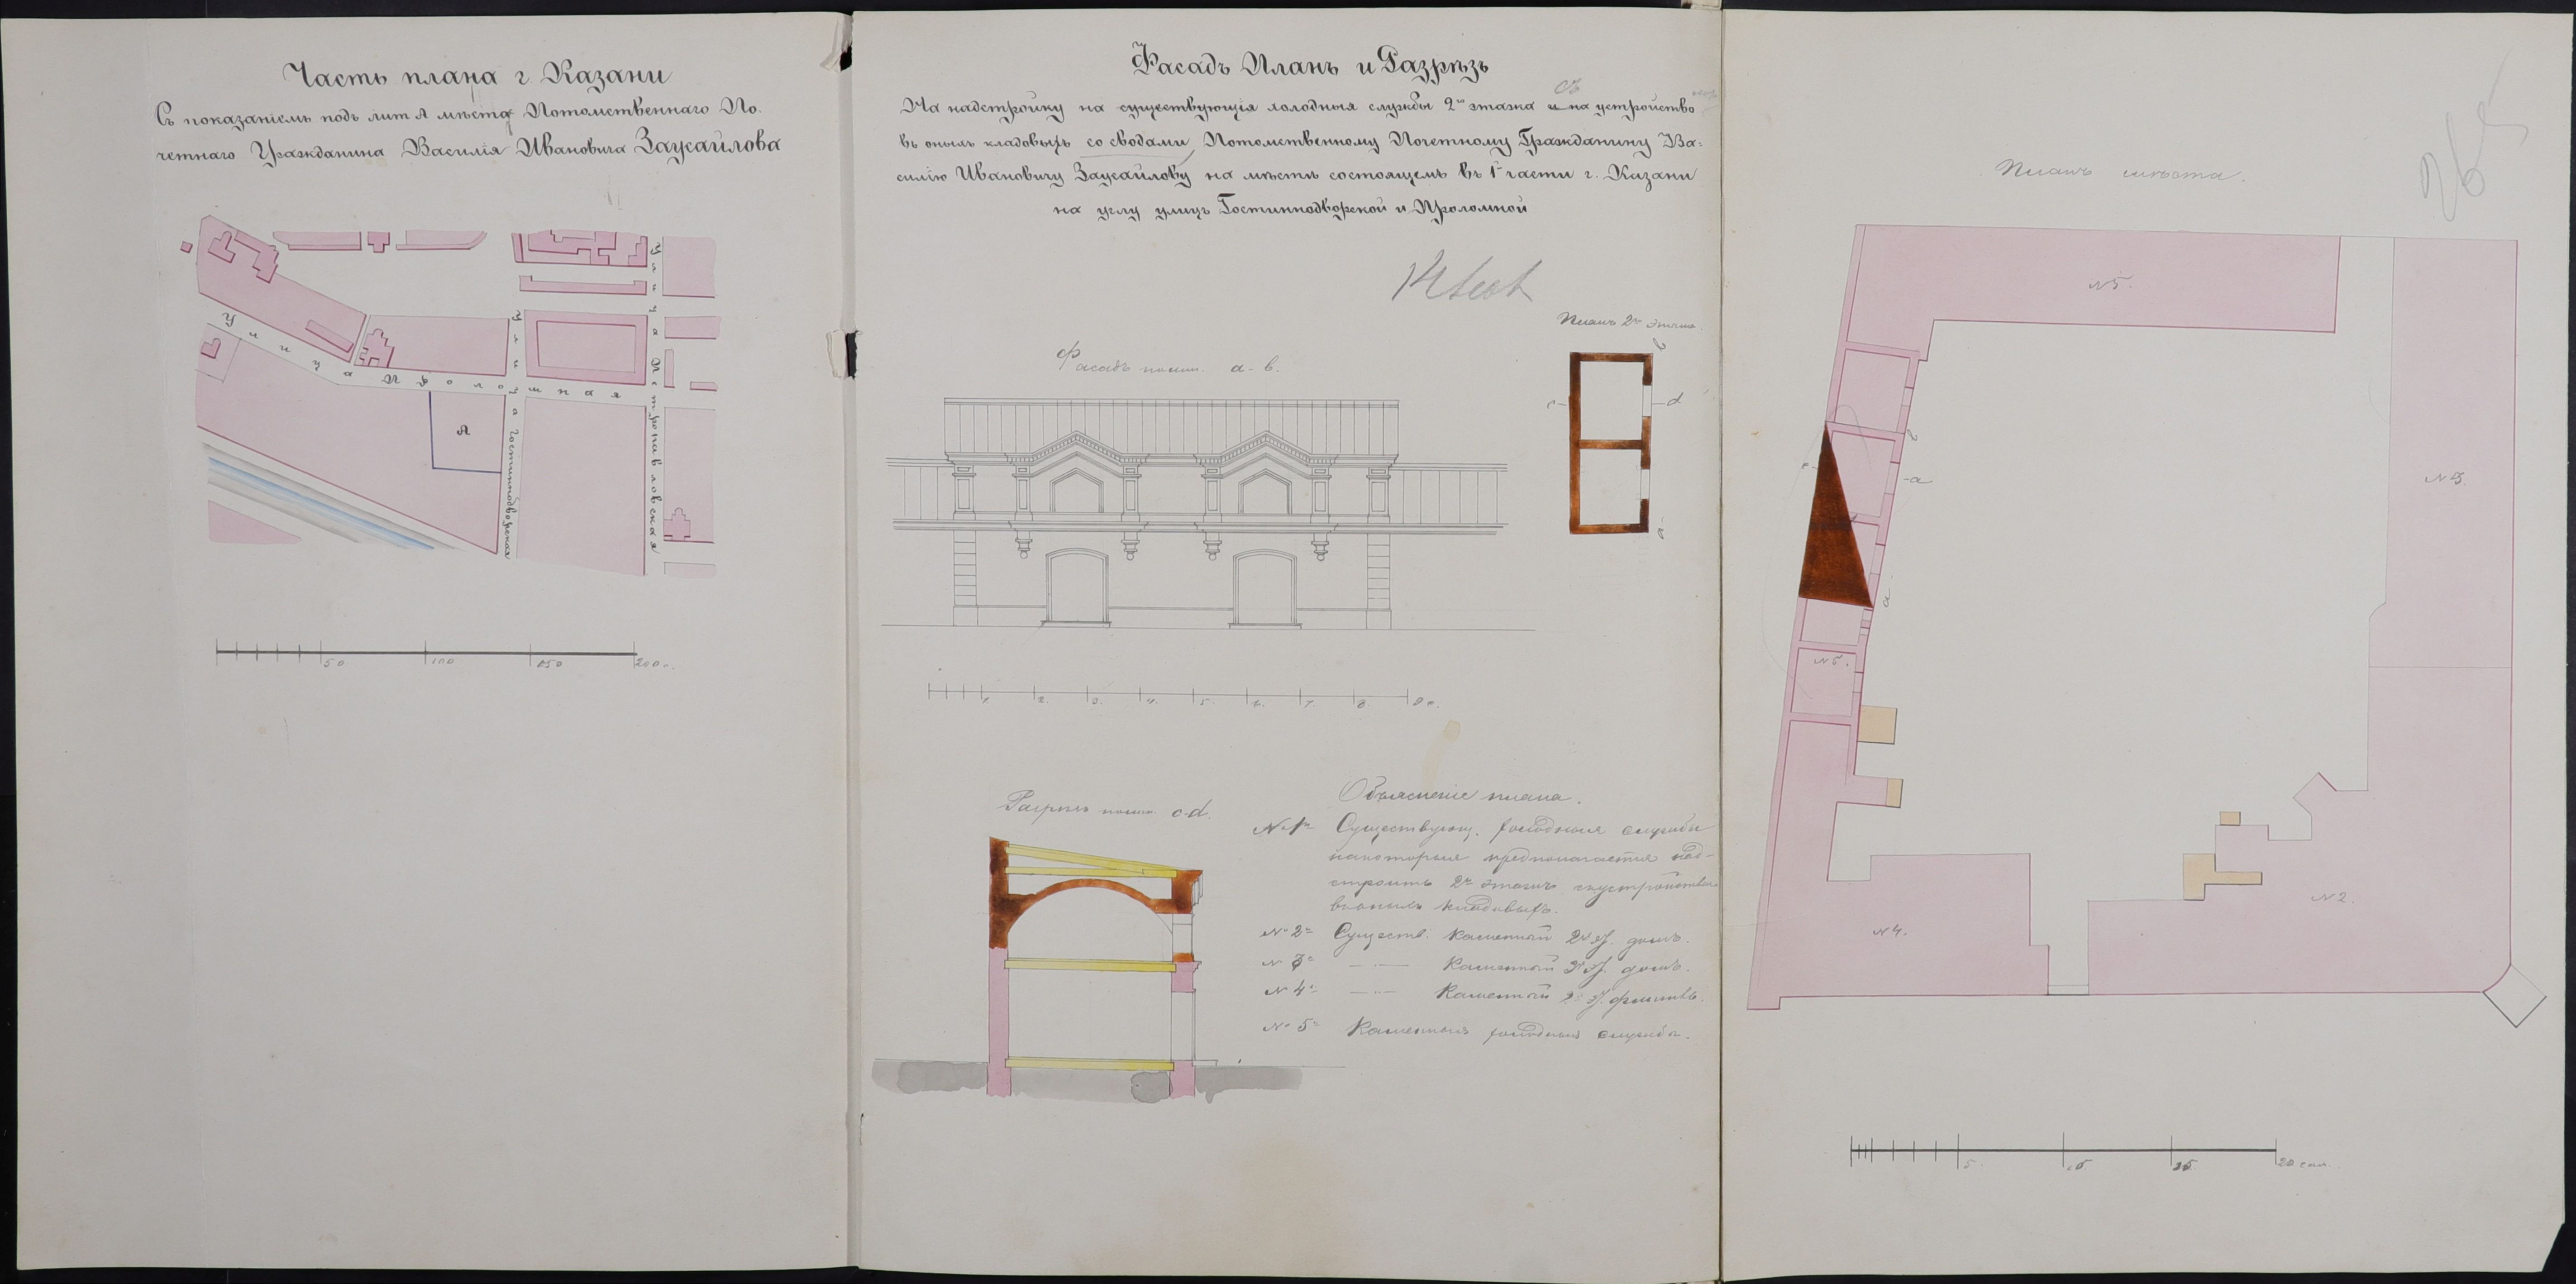 Часть плана г. Казани
Съ показанiемъ подъ лит А мѣста Потомственнаго По-
четнаго Гражданина Василiя Ивановича Заусайлова
Улица Проломная
Улица Гостиннодворская
Улица Петропавловская
А
50 100 150 200 с.
Фасадъ Планъ и Разрѣзъ
На надстройку на существующiя холодныя службы 2го этажа съ на устройство
въ оныхъ кладовыхъ со сводами Потомственному Почетному Гражданину Ва-
силiю Ивановичу Заусайлову на мѣстѣ состоящемъ въ 1й части г. Казани
на углу улицъ Гостиннодворской и Проломной
Планъ 2го этажа.
c d
Фасадъ по лин. а-в.
1. 2. 3. 4. 5. 6. 7. 8. 9 с.
Разрѣзъ по лин. c-d.
Объясненiе плана.
№ 1й Существующ. холодныя службы
на которыя предполагается над-
строить 2й этажъ съ устройством
въ оныхъ кладовыхъ.
№ 2й Существ. каменный 2хъ эт. домъ.
№ 3й —"— Каменный 3хъ эт. домъ.
№ 4й —"— Каменный 2хъ эт. флигель.
№ 5й Каменныя холодныя службы.
Планъ мѣста.
№ 5.
№ 3.
c а
№ 5.
№ 2.
№ 4.
5. 10 15 20 саж.